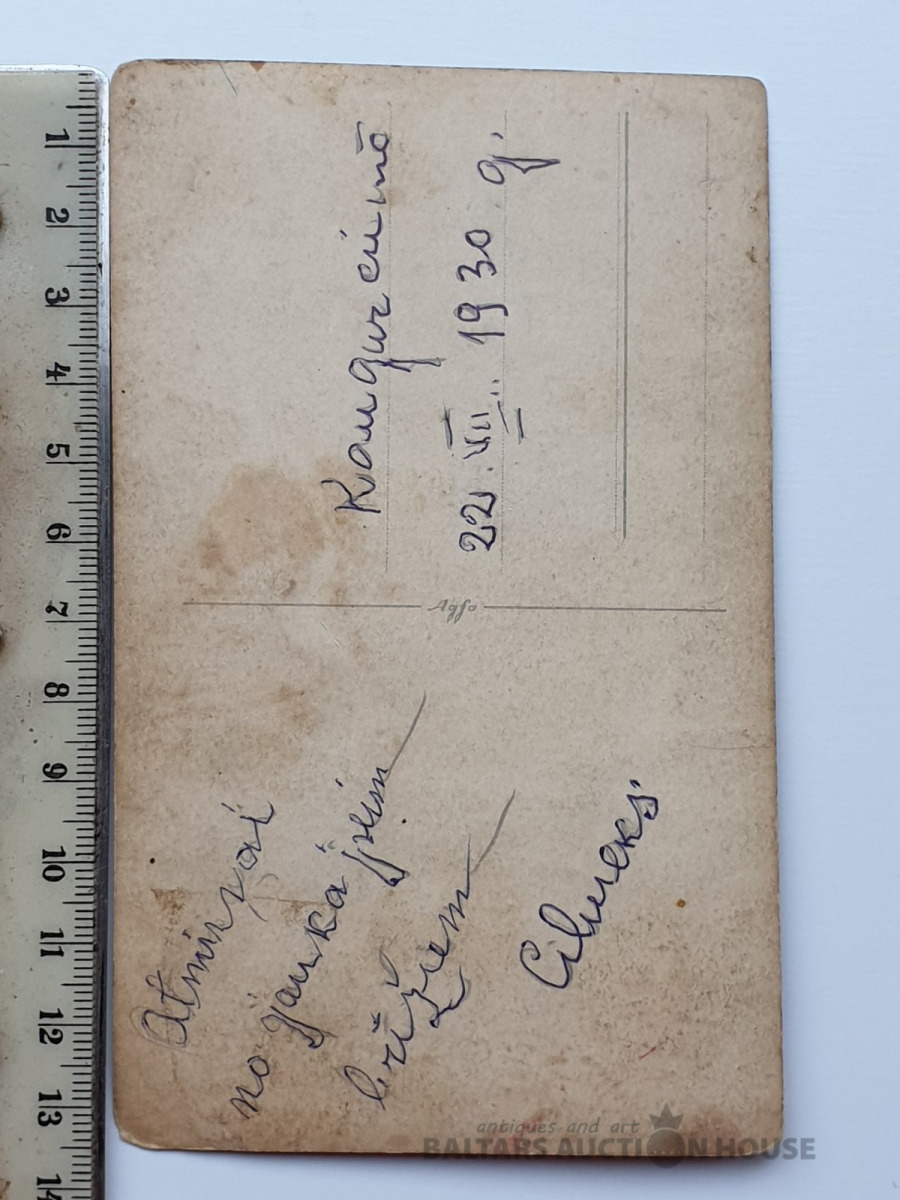 Atmiņai
no jaukajiem
brīžiem
Kangurciemā
22. VII. 1930 g.
Agfa
1
2
3
4
5
6
7
8
9
10
11
12
13
14
antiques and art
BALTARS AUCTION HOUSE